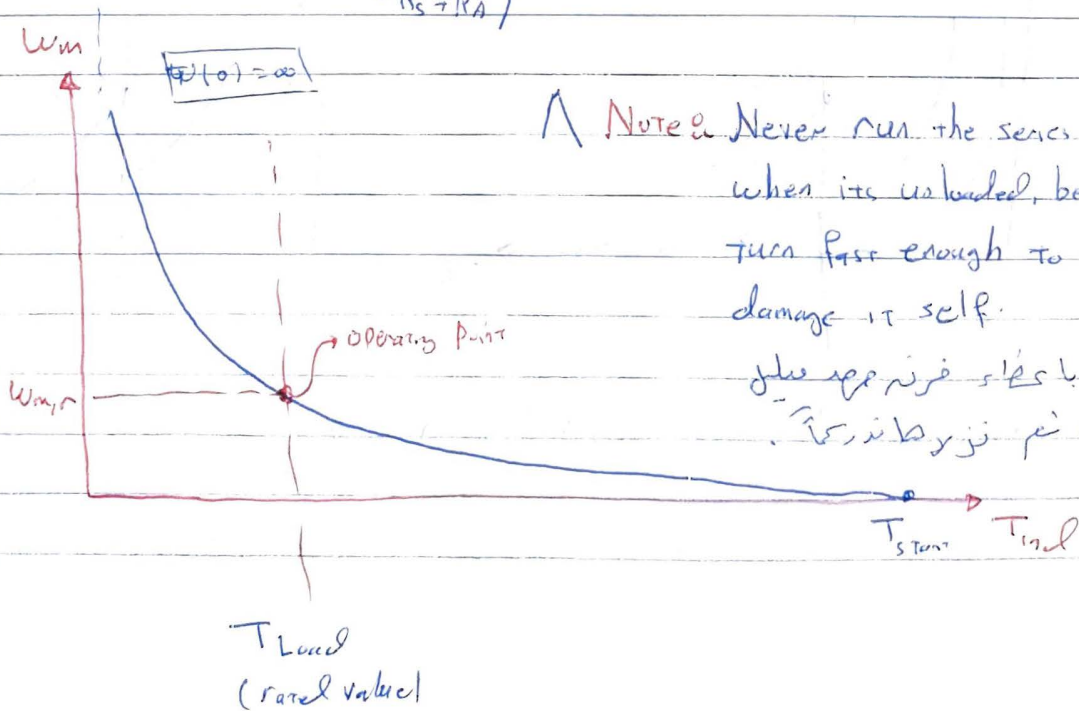 Rs + RA)
ωm
ω(0) = ∞
Note: Never run the series
when its unloaded, be
turn fast enough to
damage it self.
operating point
ωm,r
ثم نزيدها تدريجياً.
Tstart
Tind
TLoad
(rated value)